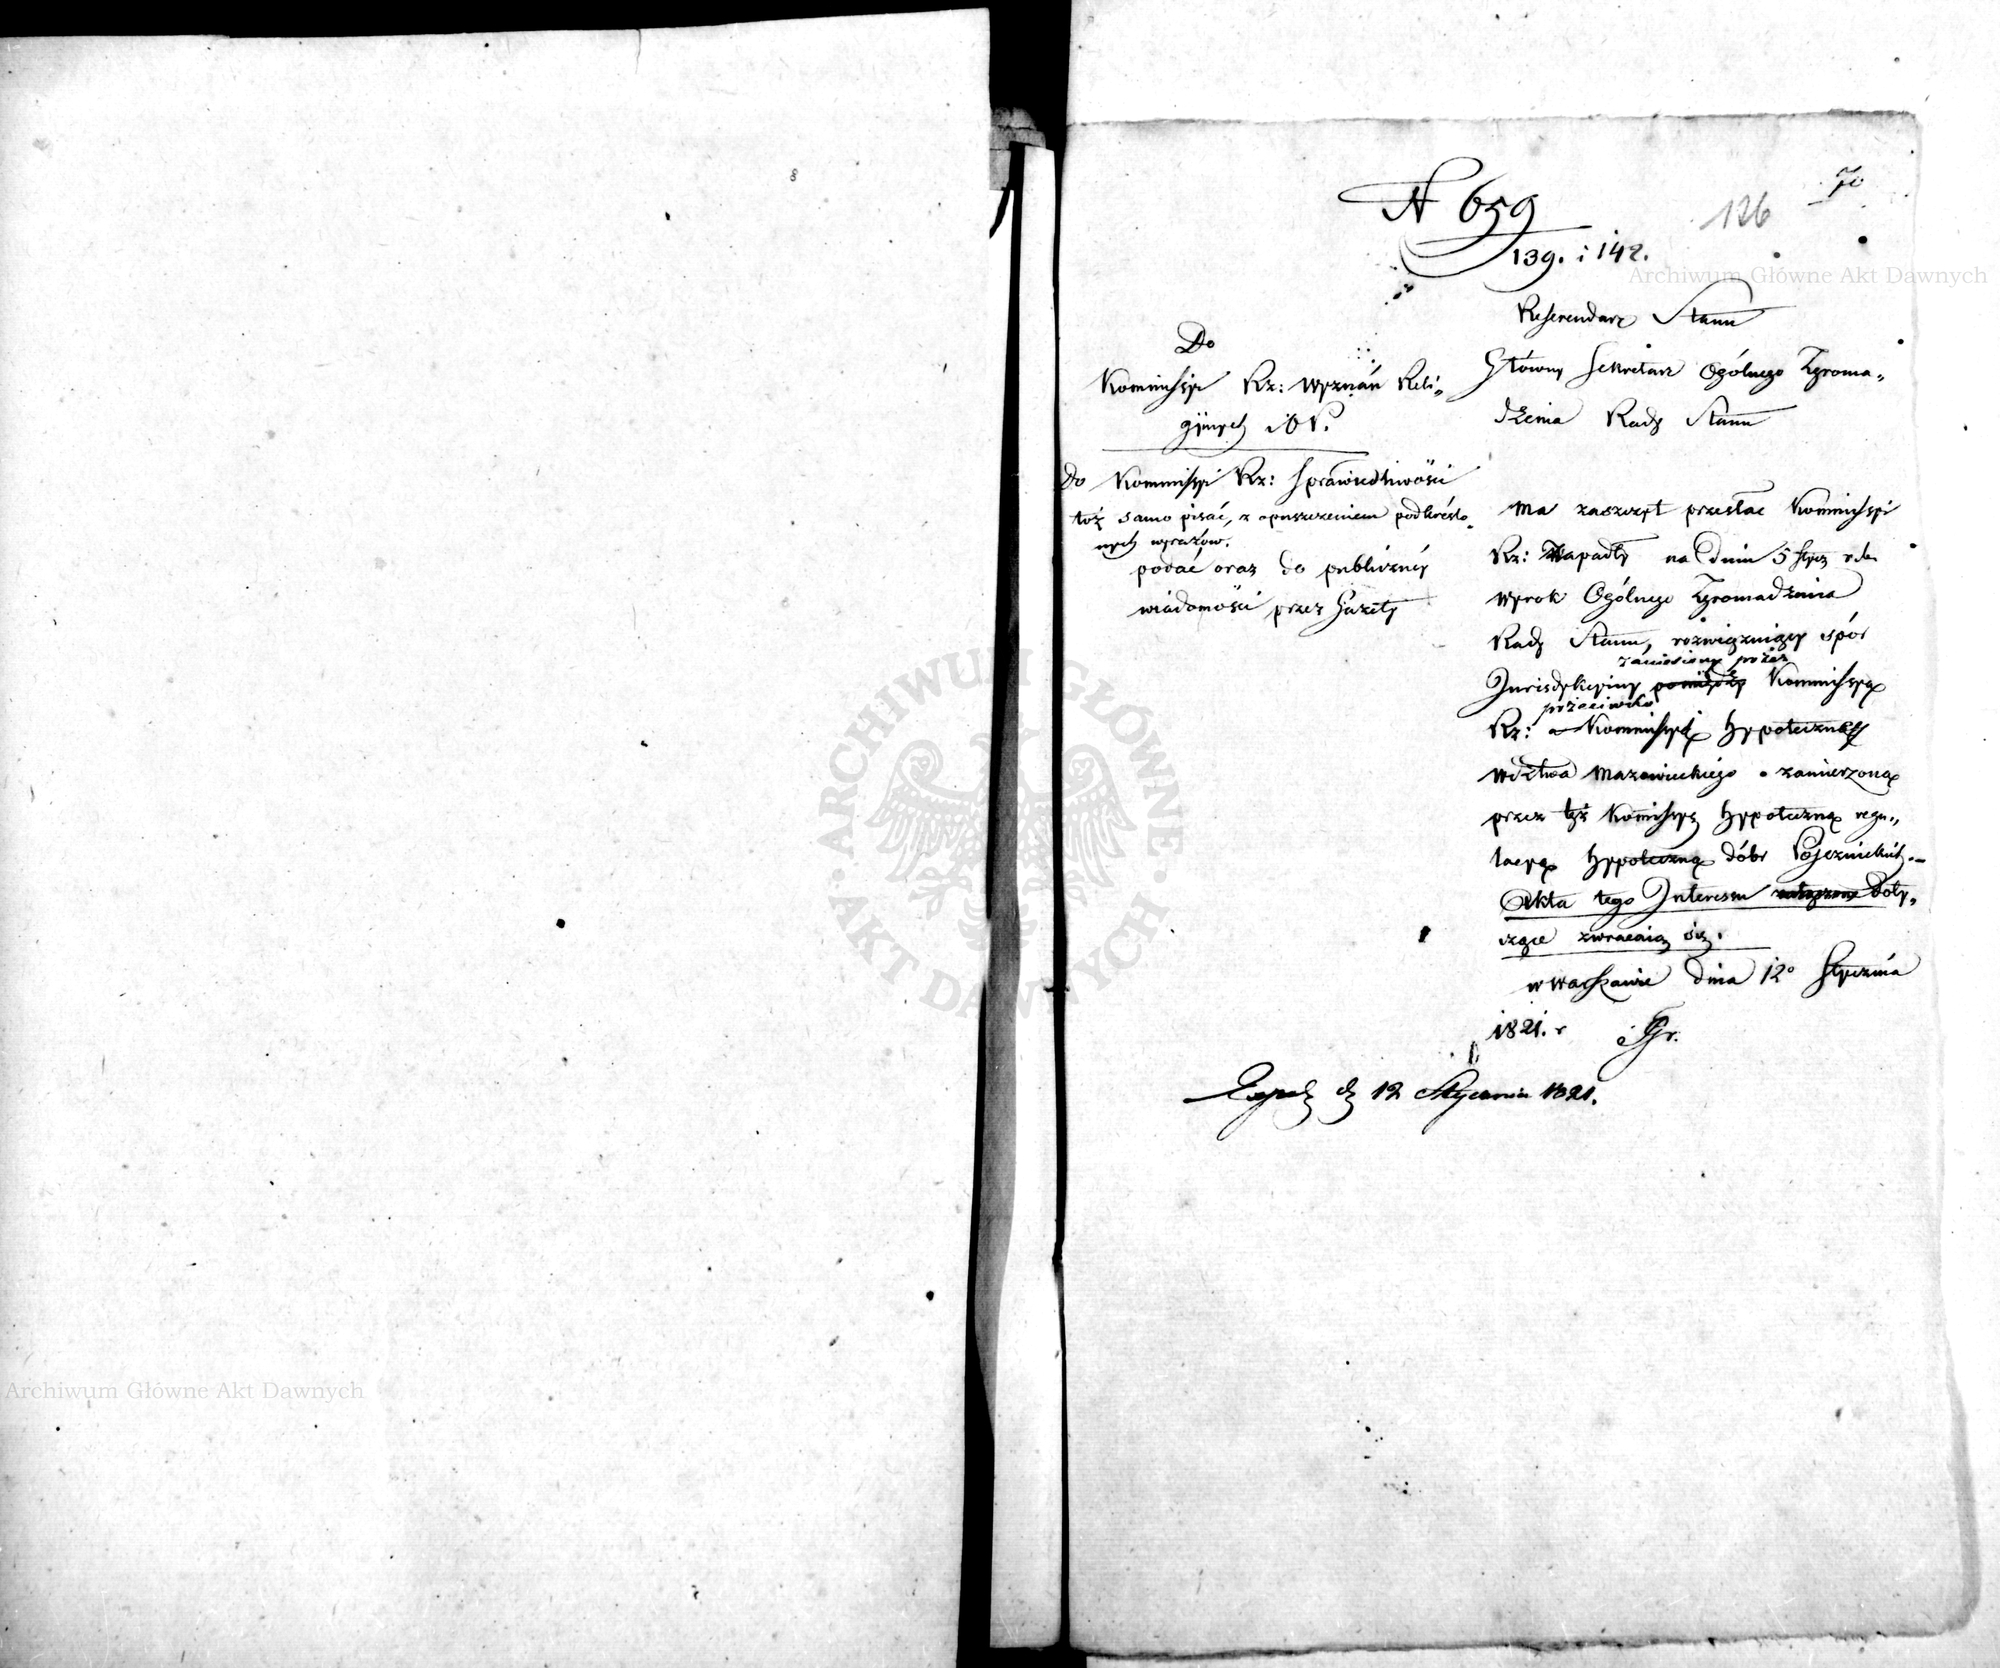 70
126
N 659
139. i 142.
Archiwum Główne Akt Dawnych
Referendarz Stanu
Główny Sekretarz Ogólnego Zgroma„
dzenia Rady Stanu
Do
Kommissyi Rz: Wyznań Reli„
gijnych i O P.
Do Kommissyi Rz: Sprawiedliwości
toż samo pisać, z opuszczeniem podkreślo„
nych wyrazów.
podać oraz do publicznéy
wiadomości przez Gazety
ma zaszczyt przesłać Kommissyi
Rz: zapadły na dniu 5 Stycz r. b.
wyrok Ogólnego Zgromadzenia
Rady Stanu, rozwiązuiący spór
zaniesiony przez
Jurisdykcyiny pomiędzy Kommissyą
przeciwko
Rz: a Kommissyi Hypoteczney
Wdztwa Mazowieckiego o zamierzoną
przez tęż Kommissyą Hypoteczną regu„
lacyą Hypoteczną dóbr
Akta tego Interessu doty„
czące zwracaią się.
w Warszawie dnia 12o Stycznia
1821. r
d 12 Stycznia 1821.
ARCHIWUM GŁÓWNE
AKT DAWNYCH
Archiwum Główne Akt Dawnych